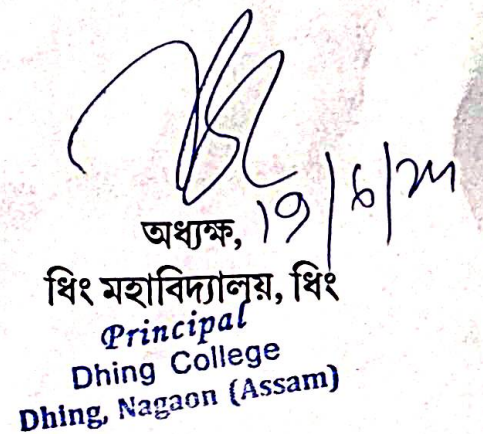 অধ্যক্ষ,
ধিং মহাবিদ্যালয়, ধিং
Principal
Dhing College
Dhing, Nagaon (Assam)